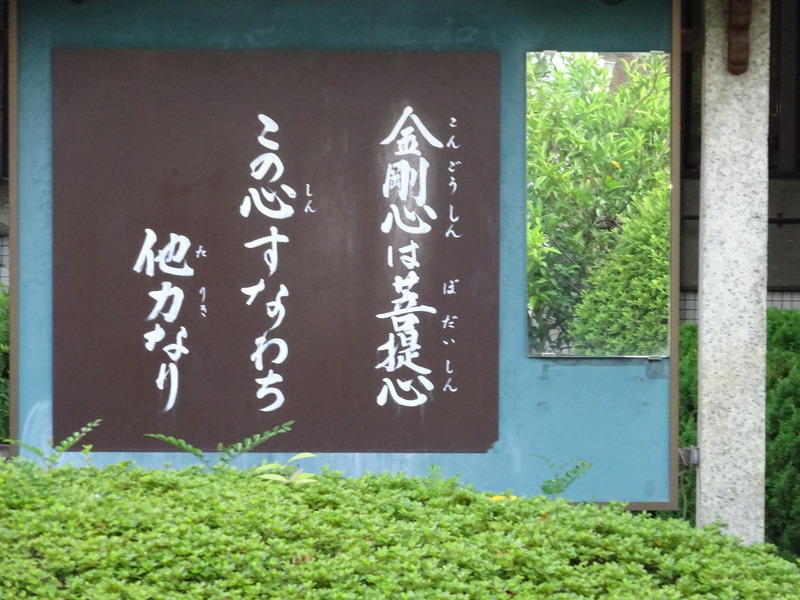 金剛心は菩提心
こんごうしん ぼだいしん
この心すなわち
しん
他力なり
たりき